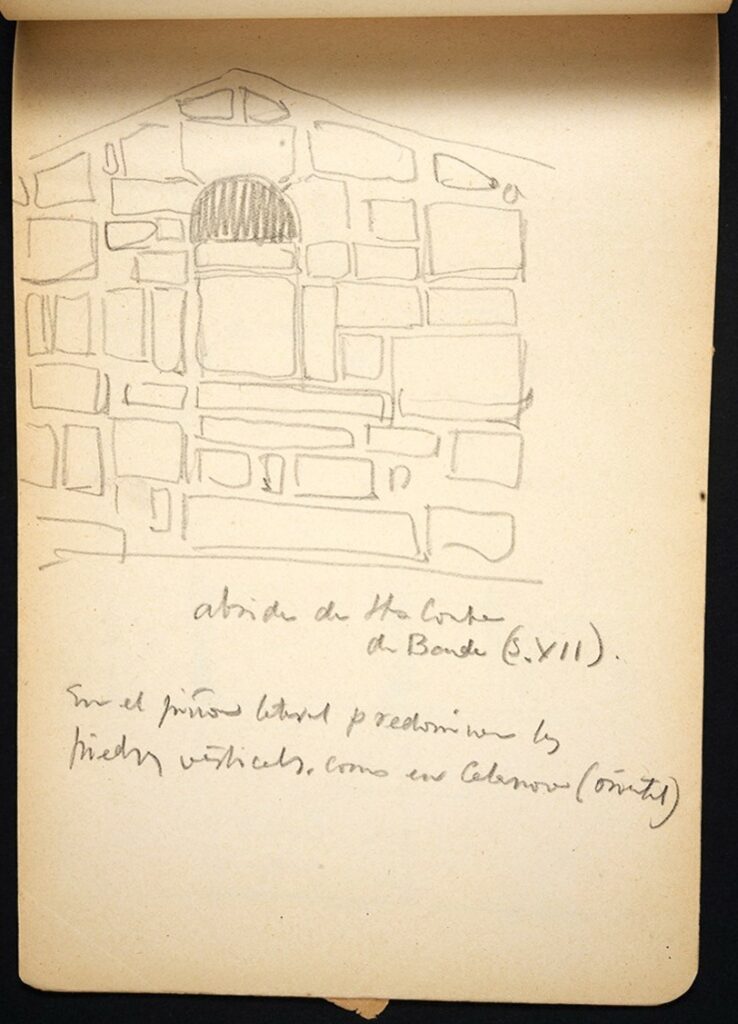 abside de Sta Comba
de Bande (S.VII).
En el piñon lateral predominan las
piedras verticales, como en Celanova (oriental)